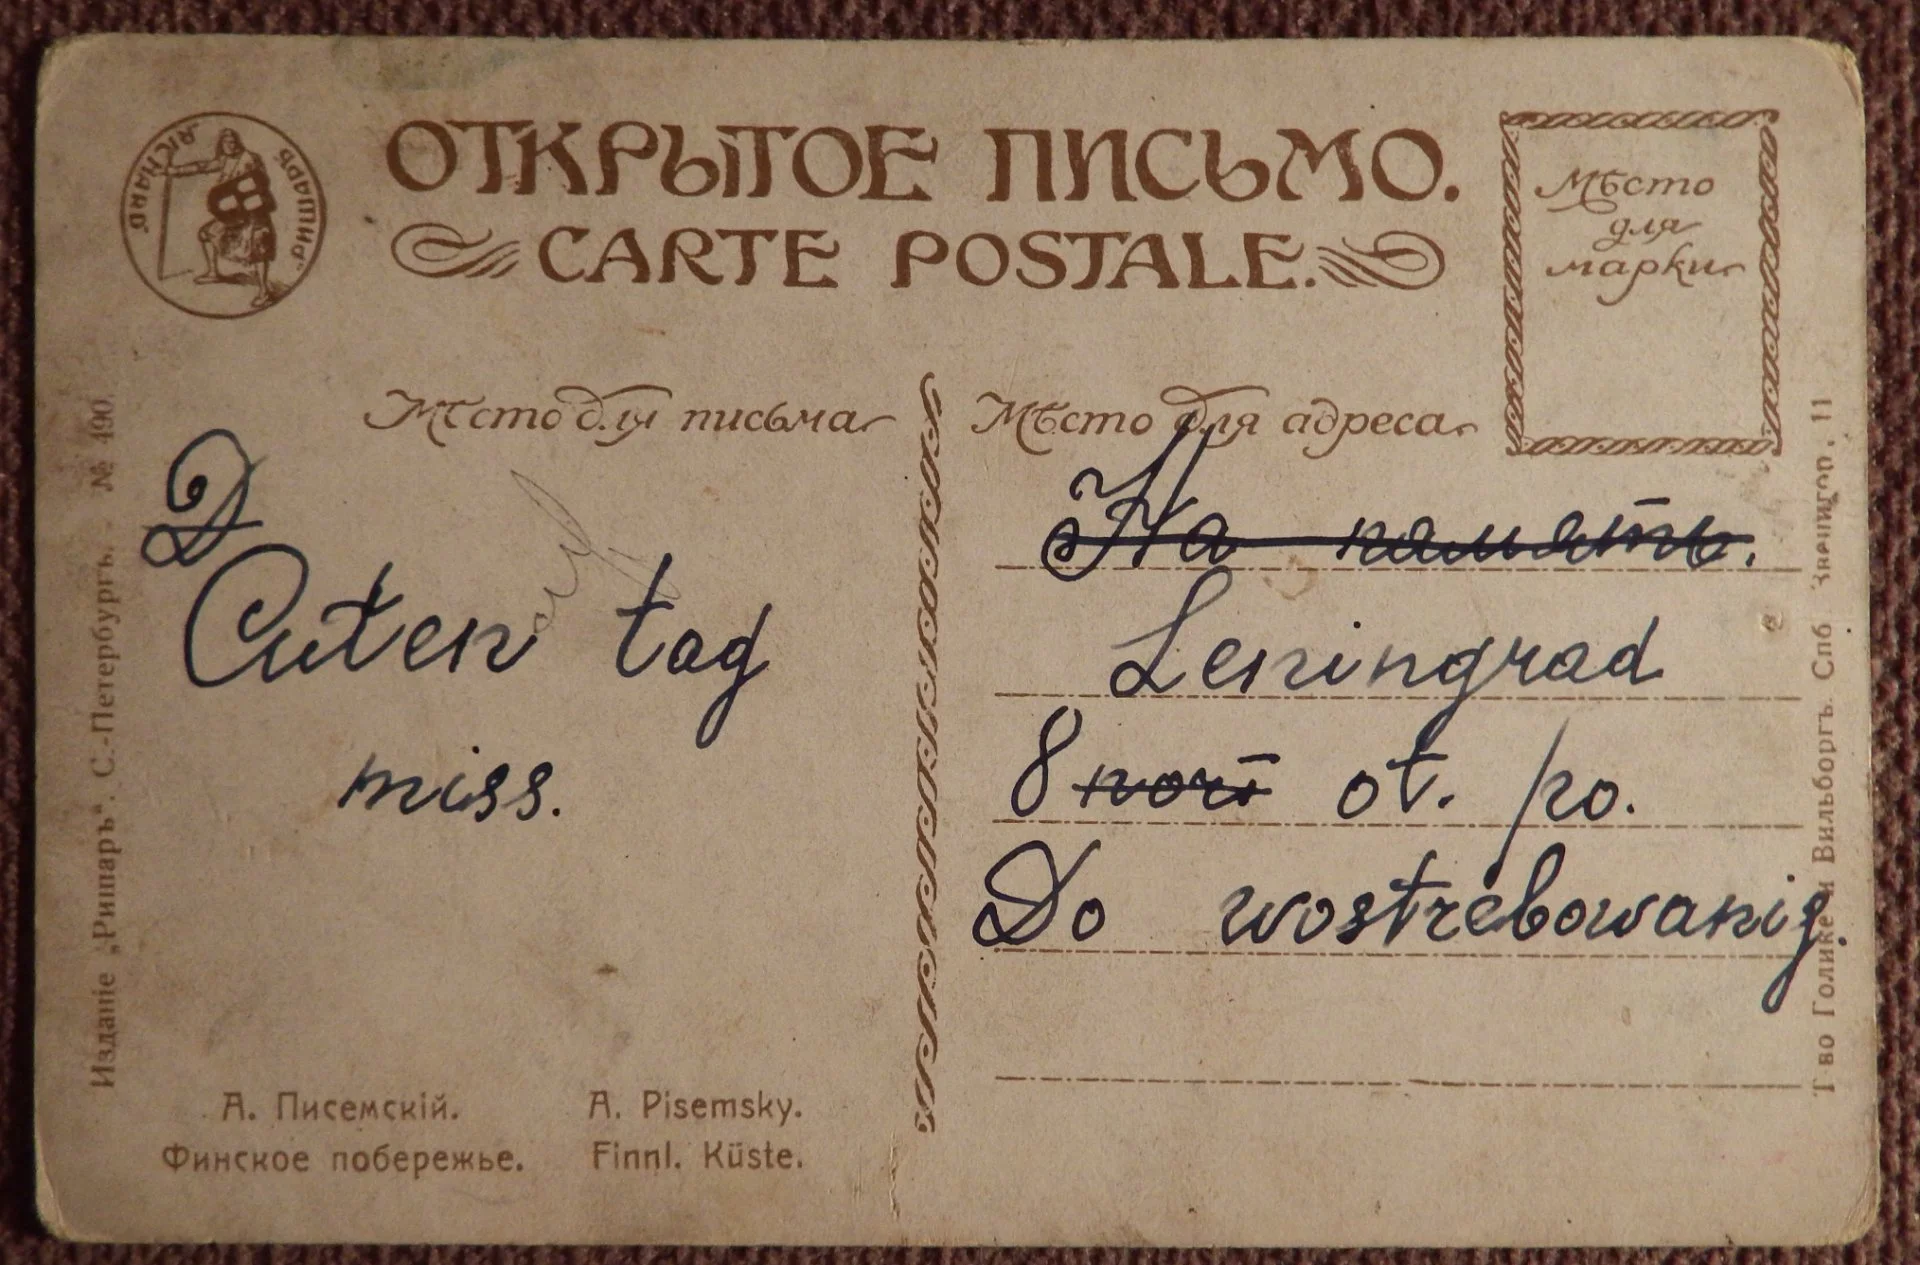 РИШАРЪ
RICHARD
ОТКРЫТОЕ ПИСЬМО.
CARTE POSTALE.
Мѣсто
для
марки
Мѣсто для письма
Мѣсто для адреса
Д
Guten tag
miss.
На память.
Leningrad
8 ot. po.
Do wostrebowanig.
А. Писемскій.
Финское побережье.
A. Pisemsky.
Finnl. Küste.
Изданіе „Ришаръ“. С.-Петербургъ. № 490.
Т во Голике и Вильборгъ. Спб Звенигор. 11